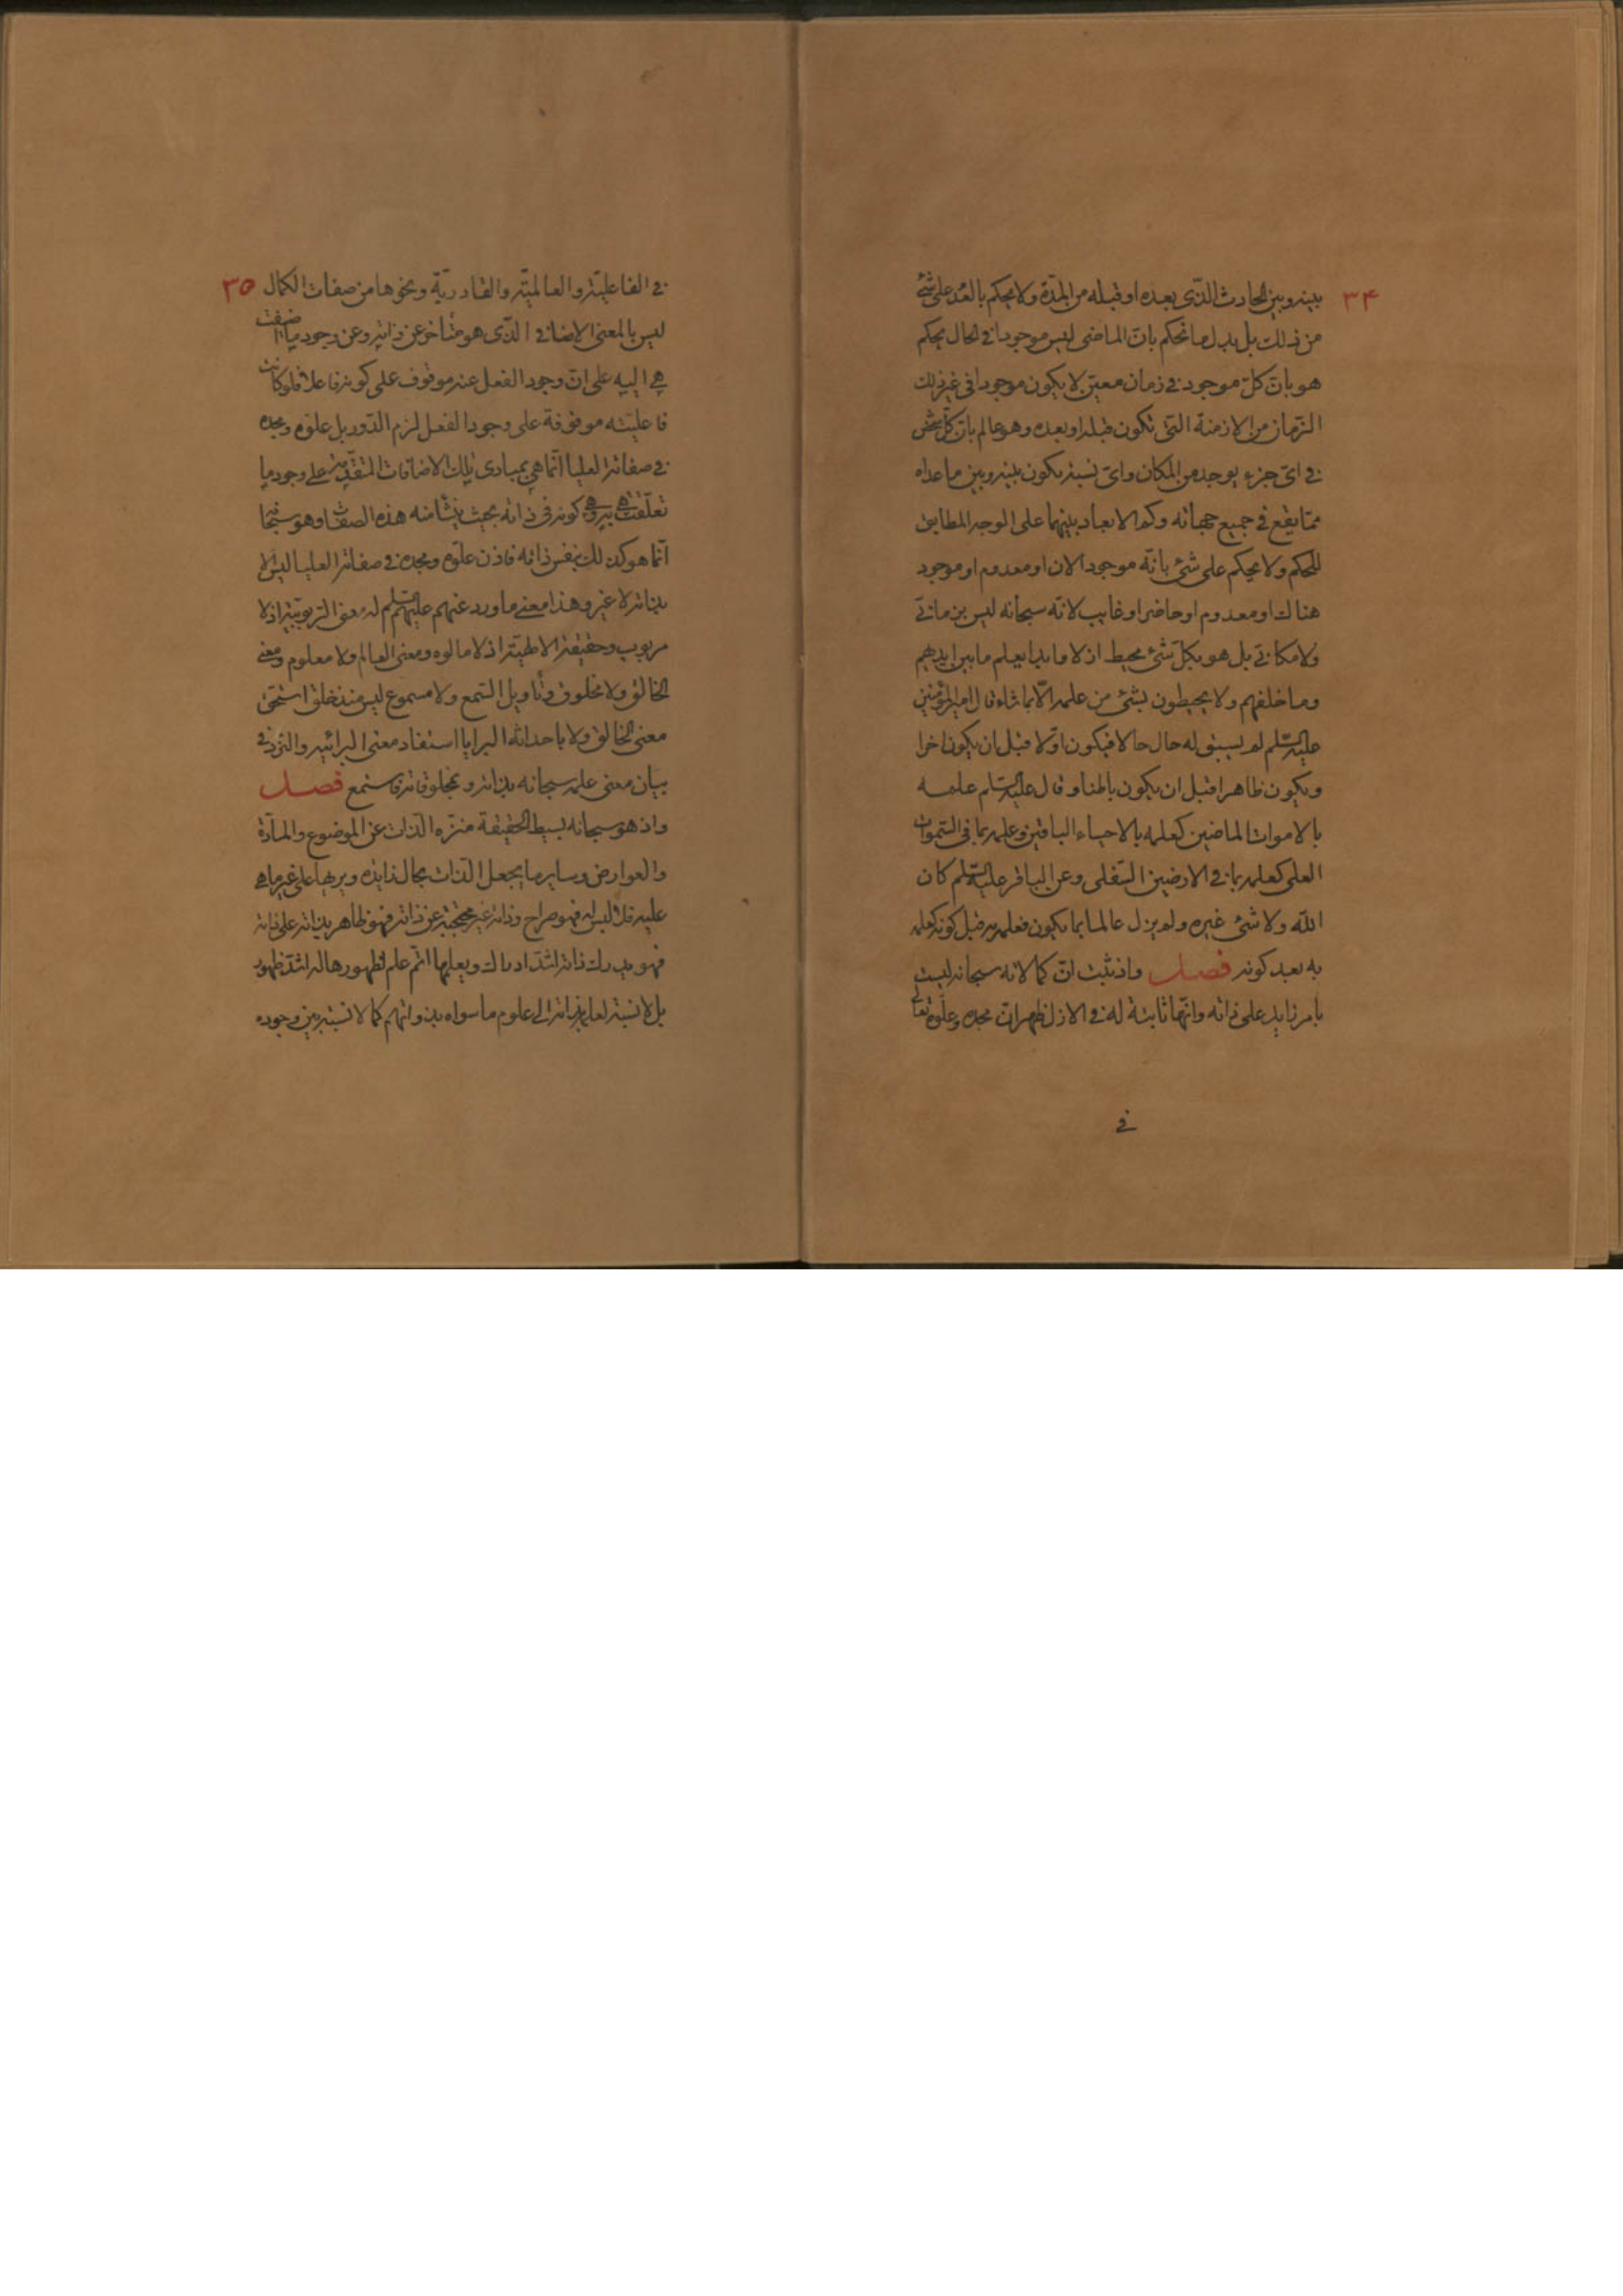 ٣٤
بينه وبين الحادث الذّى بعده او قبله من المدّة ولا يحكم بالعدم على شئ
من ذلك بل بدل ما نحكم بانّ الماضى ليس موجودا فى الحال يحكم
هو بانّ كلّ موجود فى زمان معيّن لا يكون موجودا فى غير ذلك
الزّمان من الازمنة التى تكون قبله او بعده وهو عالم بانّ كلّ شخص
فى اىّ جزء يوجد من المكان واىّ نسبة يكون بينه وبين ما عداه
ممّا يقع فى جميع جهاته وكم الابعاد بينهما على الوجه المطابق
للحكم ولا يحكم على شئ بانّه موجود الان او معدوم او موجود
هناك او معدوم او حاضر او غايب لانّه سبحانه ليس بزمانىّ
ولا مكانىّ بل هو بكلّ شئ محيط اذلا وابدا يعلم ما بين ايديهم
وما خلفهم ولا يحيطون بشئ من علمه الّا بما شاء قال امير المؤمنين
عليه السّلم لم يسبق له حال حالا فيكون اوّلا قبل ان يكون اخرا
ويكون ظاهرا قبل ان يكون باطنا وقال عليه السّلم علمه
بالاموات الماضين كعلمه بالاحياء الباقين وعلمه بما فى السّموات
العلى كعلمه بما فى الارضين السّفلى وعن الباقر عليه السّلم كان
اللّه ولا شئ غيره ولم يزل عالما بما يكون فعلمه به قبل كونه كعلمه
به بعد كونه فصل واذ ثبت انّ كمالاته سبحانه ليست
بامر زايد على ذاته وانّها ثابتة له فى الازل ظهر انّ مجده وعلوّه تعالى
فى
٣٥
فى الفاعليّة والعالميّة والقادريّة ونحوها من صفات الكمال
ليس بالمعنى الاضافى الذّى هو متأخر عن ذاته وعن وجود ما اضيفت
هى اليه على انّ وجود الفعل عنه موقوف على كونه فاعلا فلو كانت
فاعليّته موقوفة على وجود الفعل لزم الدّور بل علوّه ومجده
فى صفاته العليا انّما هى بمبادى تلك الاضافات المتقدّمة على وجود ما
تعلّقت هى به وهى كونه فى ذاته بحيث ينشأ منه هذه الصفات وهو سبحانه
انّما هو كذلك بنفس ذاته فاذن علوّه ومجده فى صفاته العليا ليس الّا
بذاته لا غير وهذا معنى ما ورد عنهم عليهم السّلم له معنى الرّبوبيّة اذ لا
مربوب وحقيقة الالهيّة اذ لا مالوه ومعنى العالم ولا معلوم ومعنى
الخالق ولا مخلوق وتأويل السّمع ولا مسموع ليس منذ خلق استحقّ
معنى الخالق ولا باحداثه البرايا استفاد معنى البرائيه
بيان معنى علمه سبحانه بذاته وبمخلوقاته فاستمع فصل
واذ هو سبحانه بسيط الحقيقة منزّه الذّات عن الموضوع والمادّة
والعوارض وساير ما يجعل الذّات بحال زايدة ويريها على غير ما هى
عليه فلا لبس له فهو صراح وذاته غير محتجبة عن ذاته فهو ظاهر بذاته على ذاته
فهو يدرك ذاته اشدّ ادراك ويعلمها اتمّ علم لظهورها له اشدّ ظهور
بل لا نسبة لعلمه بذاته الى علوم ما سواه بذواتهم كما لا نسبة بين وجوده